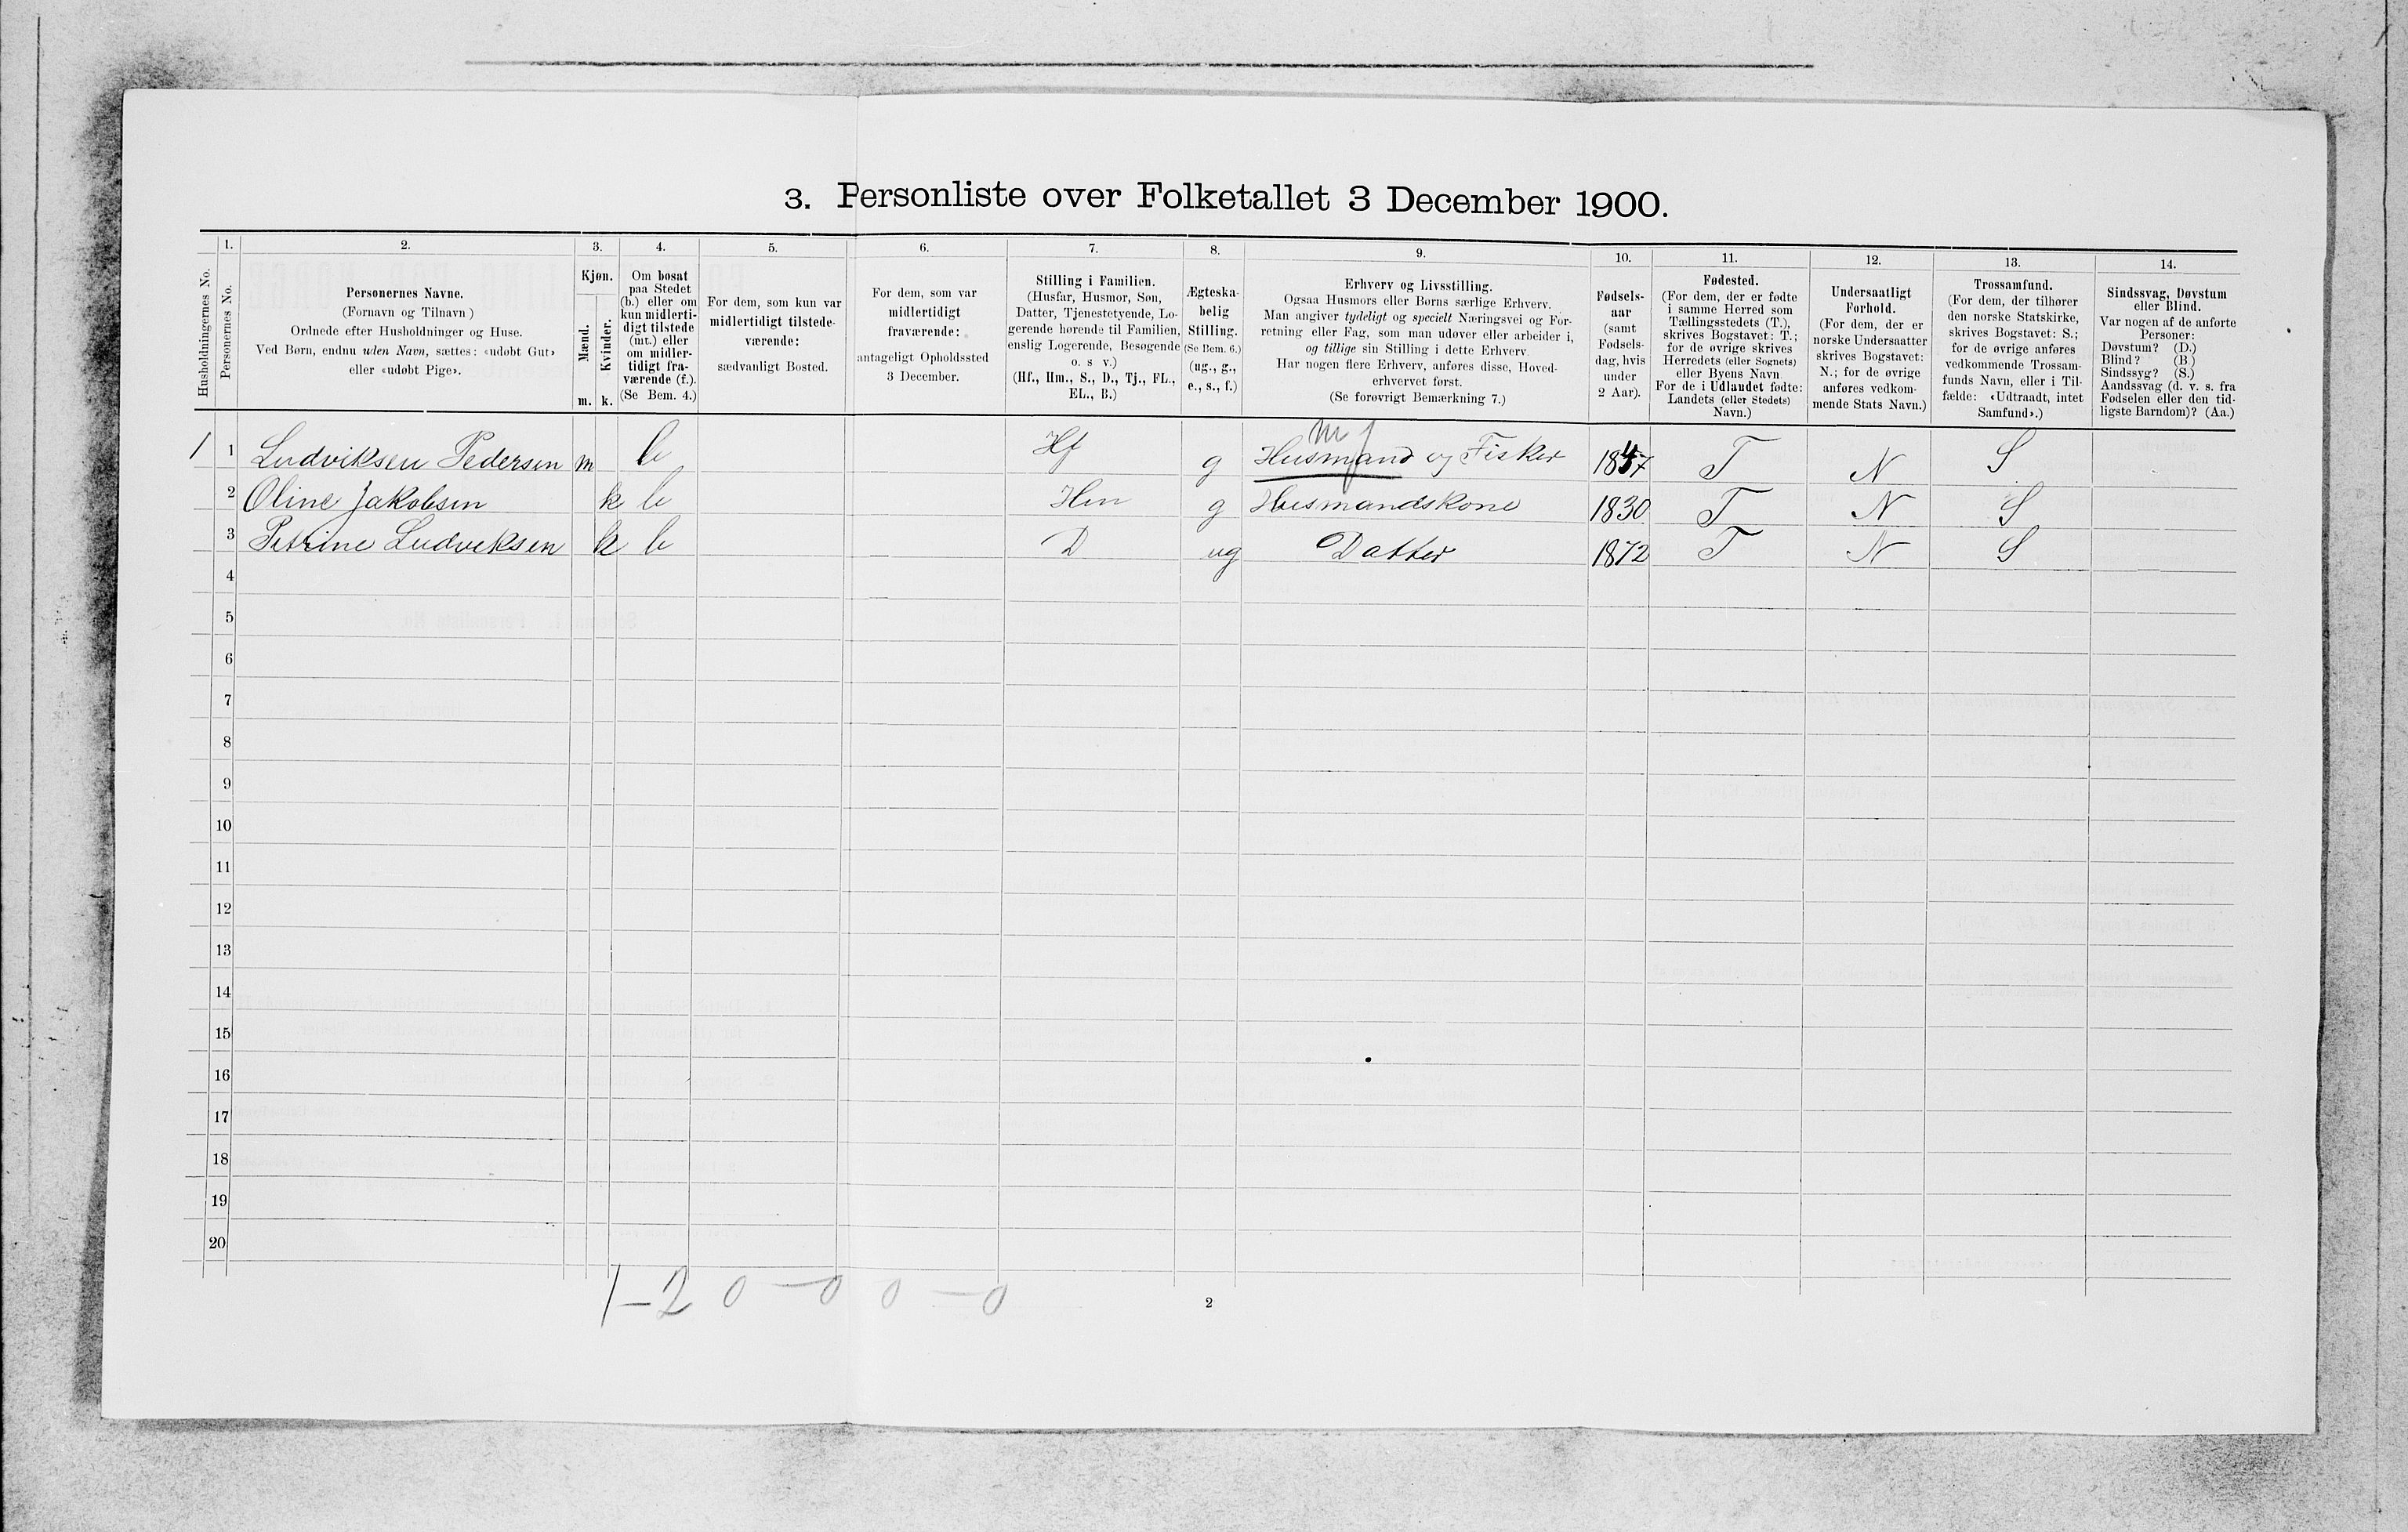 3. Personliste over Folketallet 3 December 1900.
1. 2. 3. 4. 5. 6. 7. 8. 9. 10. 11. 12. 13. 14.
Husholdningernes No.
Personernes No.
Personernes Navne.
(Fornavn og Tilnavn)
Ordnede efter Husholdninger og Huse.
Ved Børn, endnu uden Navn, sættes: «udøbt Gut»
eller «udøbt Pige».
Kjøn.
Mænd.
Kvinder.
m. k.
Om bosat
paa Stedet
(b.) eller om
kun midlerti-
digt tilstede
(mt.) eller
om midler-
tidigt fra-
værende (f.).
(Se Bem. 4.)
For dem, som kun var
midlertidigt tilstede-
værende:
sædvanligt Bosted.
For dem, som var
midlertidigt
fraværende:
antageligt Opholdssted
3 December.
Stilling i Familien.
(Husfar, Husmor, Søn,
Datter, Tjenestetyende, Lo-
gerende hørende til Familien,
enslig Logerende, Besøgende
o. s v.)
(Hf., Hm., S., D., Tj., FL.,
EL., B.)
Ægteska-
belig
Stilling.
(Se Bem. 6.)
(ug., g.,
e., s., f.)
Erhverv og Livsstilling.
Ogsaa Husmors eller Børns særlige Erhverv.
Man angiver tydeligt og specielt Næringsvei og For-
retning eller Fag, som man udøver eller arbeider i,
og tillige sin Stilling i dette Erhverv.
Har nogen flere Erhverv, anføres disse, Hoved-
erhvervet først.
(Se forøvrigt Bemærkning 7.)
Fødsels-
aar
(samt
Fødsels-
dag, hvis
under
2 Aar).
Fødested.
(For dem, der er fødte
i samme Herred som
Tællingsstedets (T.),
skrives Bogstavet: T.;
for de øvrige skrives
Herredets (eller Sognets)
eller Byens Navn
For de i Udlandet fødte:
Landets (eller Stedets)
Navn.)
Undersaatligt
Forhold.
(For dem, der er
norske Undersaatter
skrives Bogstavet:
N.; for de øvrige
anføres vedkom-
mende Stats Navn.)
Trossamfund.
(For dem, der tilhører
den norske Statskirke,
skrives Bogstavet: S.;
for de øvrige anføres
vedkommende Trossam-
funds Navn, eller i Til-
fælde: «Udtraadt, intet
Samfund».)
Sindssvag, Døvstum
eller Blind.
Var nogen af de anførte
Personer:
Døvstum? (D.)
Blind? (B)
Sindssyg? (S.)
Aandssvag (d. v. s. fra
Fødselen eller den tid-
ligste Barndom)? (Aa.)
m f
1 1 Ludviksen Pedersen m b Hf g Husmand og Fisker T N S
2 Oline Jakobsen k b Hm g Husmandskone 1830 T N S
3 Petrine Ludveksen k b D ug Datter 1872 T N S
4
5
6
7
8
9
10
11
12
13
14
15
16
17
18
19
20
1-2 0-0 0-0
2